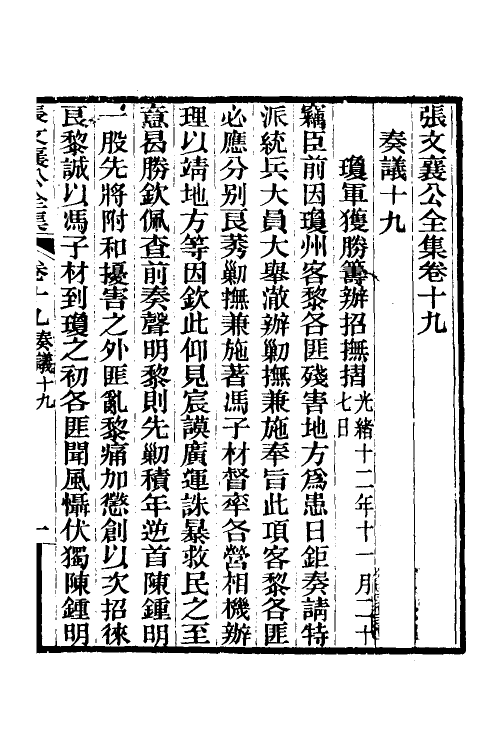 張文襄公全集卷十九
奏議十九
瓊軍獲勝籌辦招撫摺光緒十二年十一月二十七日
竊臣前因瓊州客黎各匪殘害地方爲患日鉅奏請特
派統兵大員大舉澈辦勦撫兼施奉旨此項客黎各匪
必應分別良莠勦撫兼施著馮子材督率各營相機辦
理以靖地方等因欽此仰見宸謨廣運誅暴救民之至
意曷勝欽佩查前奏聲明黎則先勦積年逆首陳鍾明
一股先將附和擾害之外匪亂黎痛加懲創以次招徠
良黎誠以馮子材到瓊之初各匪聞風懾伏獨陳鍾明
張文襄公全集
卷十九奏議十九
一